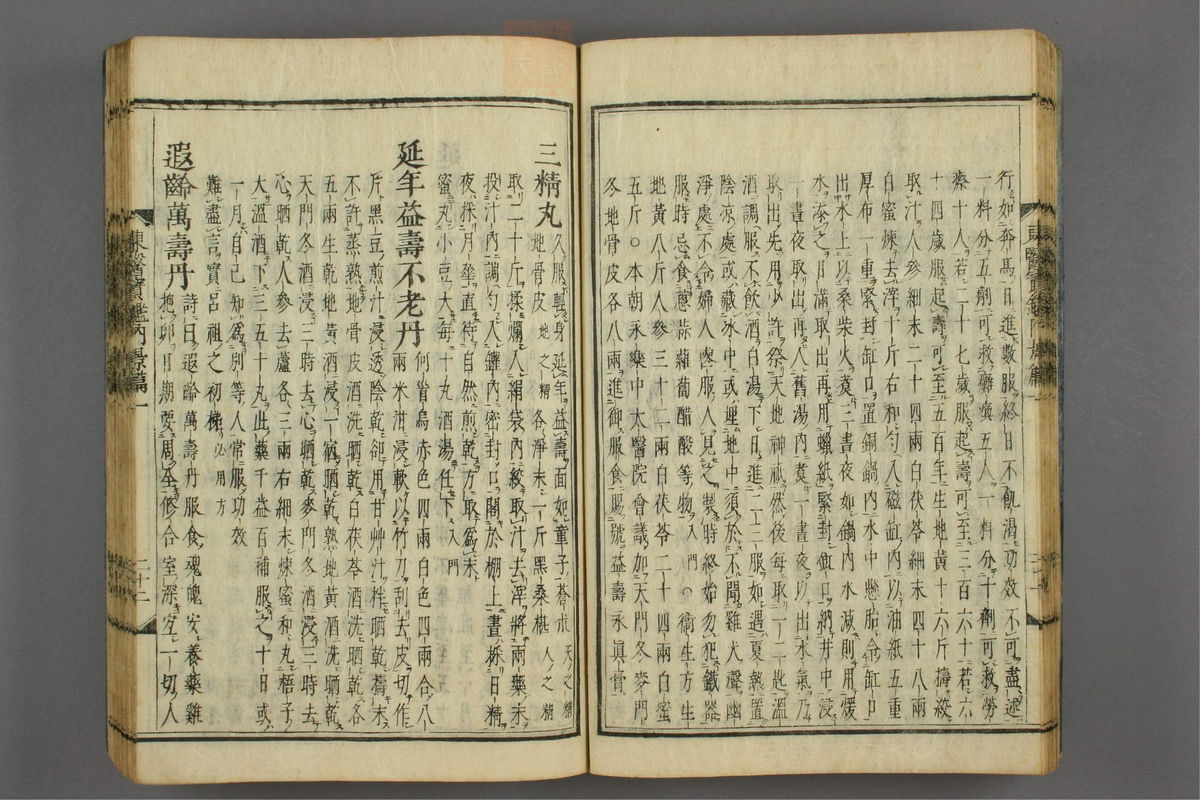 行如奔馬日進數服終日不飢渴功效不可盡述
一料分五劑可救癱瘓五人一料分十劑可救勞
瘵十人若二十七歲服起壽可至三百六十若六
十四歲服起壽可至五百年生地黃十六斤擣絞
取汁人參細末二十四兩白茯苓細末四十八兩
白蜜煉去滓十斤右和勻入磁缸內以油紙五重
厚布一重緊封缸口置銅鍋內水中懸胎令缸口
出水上以桑柴火煑三晝夜如鍋內水減則用煖
水添之日滿取出再用蠟紙緊封缸口納井中浸
一晝夜取出再入舊湯內煑一晝夜以出水氣乃
取出先用少許祭天地神祇然後每取一二匙溫
酒調服不飲酒白湯下日進二三服如遇夏熱置
陰涼處或藏冰中或埋地中須於不聞雞犬聲幽
淨處不令婦人喪服人見之製時終始勿犯鐵器
服時忌食葱蒜蘿蔔醋酸等物入門○衛生方生
地黃八斤人參三十二兩白茯苓二十四兩白蜜
五斤○本朝永樂中太醫院會議加天門冬麥門
冬地骨皮各八兩進御服食賜號益壽永眞膏
三精丸久服輕身延年益壽面如童子蒼朮天之精
地骨皮地之精各淨末一斤黑桑椹人之精
取二十斤揉爛入絹袋內絞取汁去滓將兩藥末
投汁內調勻入罐內密封口閣於棚上晝採日精
夜採月華直待自然煎乾方取爲末
蜜丸小豆大每十丸酒湯任下入門
延年益壽不老丹何首烏赤色四兩白色四兩合八
兩米泔浸軟以竹刀刮去皮切作
片黑豆煎汁浸透陰乾卻用甘艸汁拌晒乾擣末
不許蒸熟地骨皮酒洗晒乾白茯苓酒洗晒乾各
五兩生乾地黃酒浸一宿晒乾熟地黃酒洗晒乾
天門冬酒浸三時去心晒乾麥門冬酒浸三時去
心晒乾人參去蘆各三兩右細末煉蜜和丸梧子
大溫酒下三五十丸此藥千益百補服之十日或
一月自己知爲別等人常服功效
難盡言實呂祖之初梯必用方
遐齡萬壽丹詩曰遐齡萬壽丹服食魂魄安養藥雞
抱卵日期要周全修合室深宜一切人
東醫寶鑑內景篇一
二十二